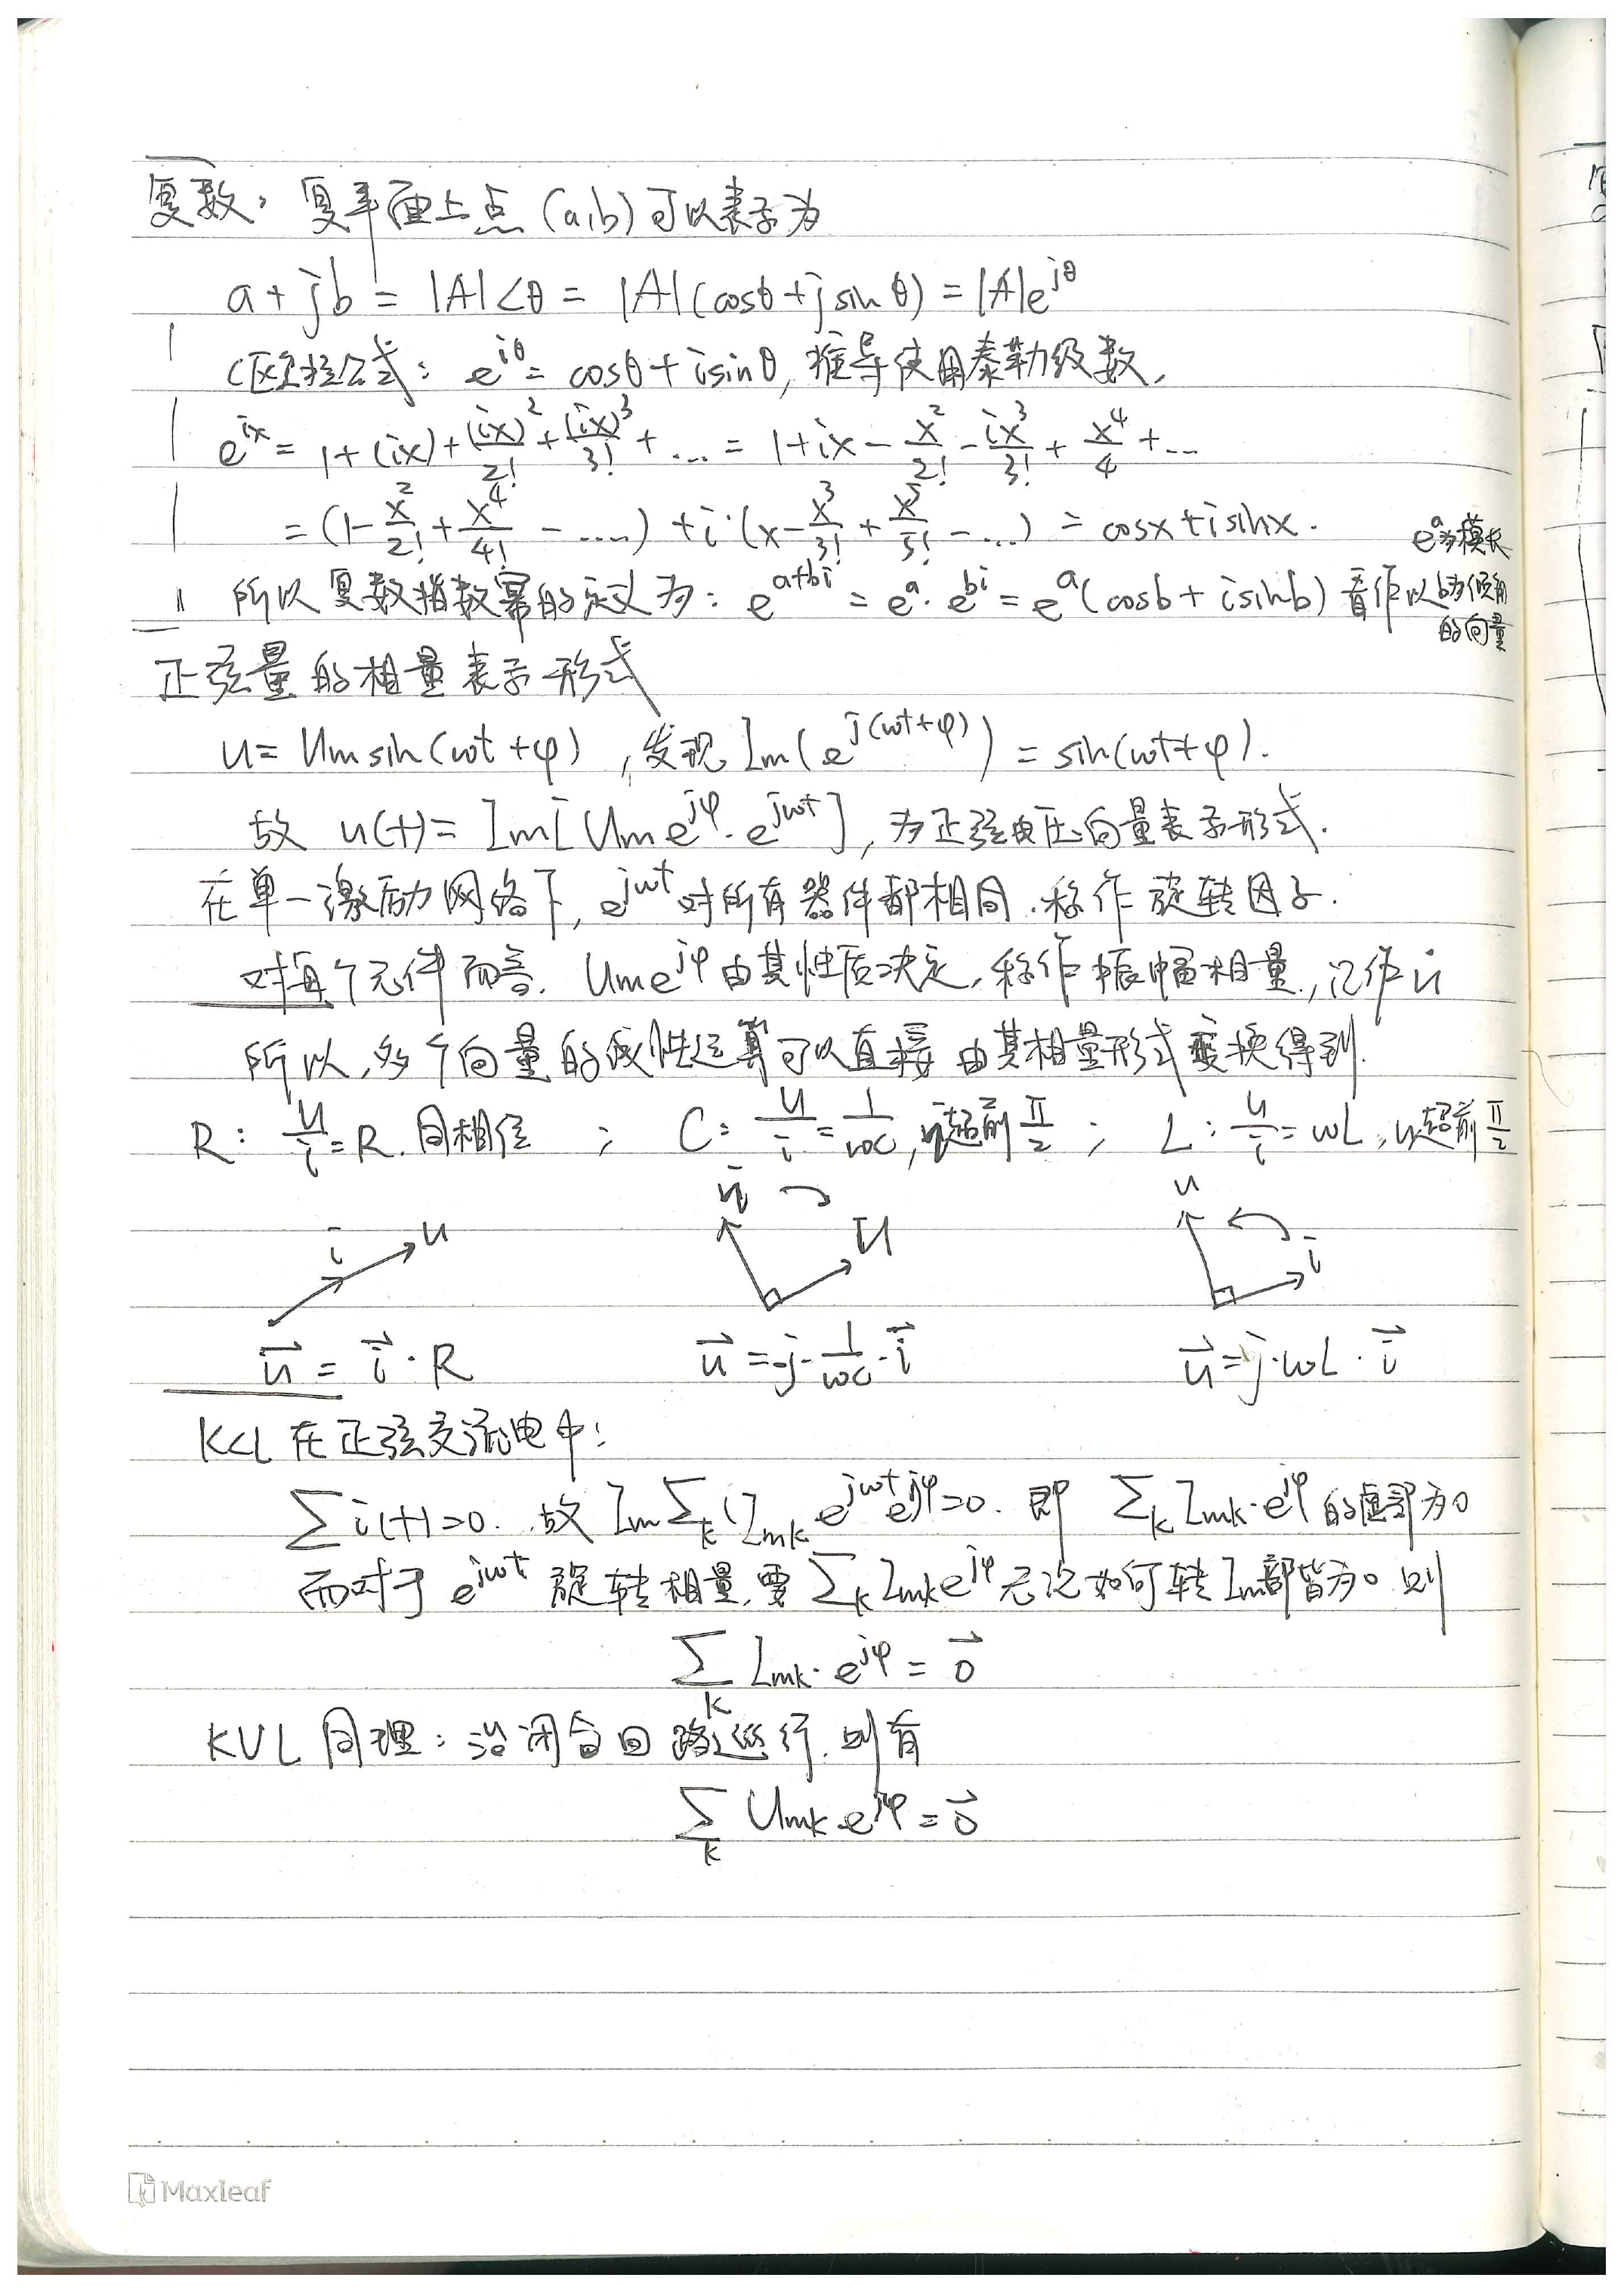 复数：复平面上点(a,b)可以表示为
a+jb = |A|∠θ = |A|(cosθ+jsinθ) = |A|e^{jθ}
(欧拉公式：e^{iθ} = cosθ+isinθ, 推导使用泰勒级数,
e^{ix} = 1+(ix)+\frac{(ix)^2}{2!}+\frac{(ix)^3}{3!}+... = 1+ix-\frac{x^2}{2!}-\frac{ix^3}{3!}+\frac{x^4}{4}+...
=(1-\frac{x^2}{2!}+\frac{x^4}{4!}-.....)+i·(x-\frac{x^3}{3!}+\frac{x^5}{5!}-...) = cosx+isinx.
所以复数指数幂的定义为：e^{a+bi} = e^a·e^{bi} = e^a(cosb+isinb) 看作以b为倾角的向量
e^a为模长
正弦量的相量表示形式
u=Umsin(ωt+φ), 发现Im(e^{j(ωt+φ)}) = sin(ωt+φ).
故 u(t)=Im[Ume^{jφ}·e^{jωt}], 为正弦电压向量表示形式.
在单一激励网络下, e^{jωt}对所有器件都相同.称作旋转因子.
对每个元件而言. Ume^{jφ}由其性质决定,称作振幅相量,记作u̇
所以,多个向量的线性运算可以直接由其相量形式变换得到.
R: \frac{u}{i}=R.同相位 ; C: \frac{u}{i}=\frac{1}{ωC}, i超前\frac{π}{2} ; L: \frac{u}{i}=ωL, u超前\frac{π}{2}
i u
i U
u i
\vec{u} = \vec{i}·R \vec{u}=-j·\frac{1}{ωC}·\vec{i} \vec{u}=j·ωL·\vec{i}
KCL在正弦交流电中：
∑i(t)=0. 故 Im∑_k(I_{mk} e^{jωt}e^{jφ}=0. 即 ∑_k I_{mk}·e^{jφ}的虚部为0
而对于e^{jωt}旋转相量,要∑_k I_{mk}e^{jφ}无论如何转Im部皆为0.则
∑_k I_{mk}·e^{jφ} = \vec{0}
KVL同理：沿闭合回路巡行.则有
∑_k U_{mk}·e^{jφ} = \vec{0}
Maxleaf